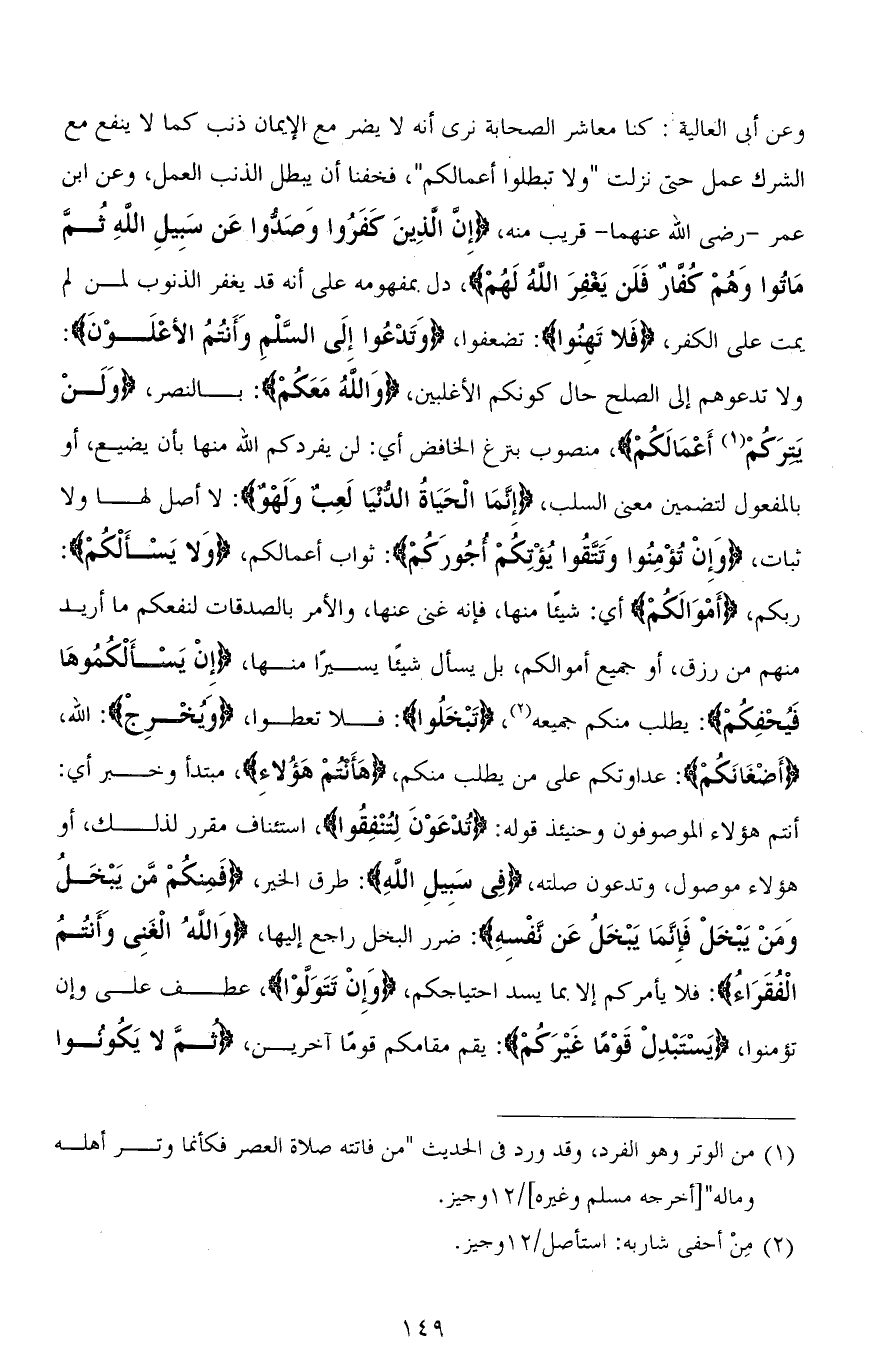 وعن أبى العالية : كنا معاشر الصحابة نرى أنه لا يضر مع الإيمان ذنب كما لا ينفع مع
الشرك عمل حتى نزلت "ولا تبطلوا أعمالكم"، فخفنا أن يبطل الذنب العمل، وعن ابن
عمر -رضى الله عنهما- قريب منه، ﴿إِنَّ الَّذِينَ كَفَرُوا وَصَدُّوا عَن سَبِيلِ اللَّهِ ثُمَّ
مَاتُوا وَهُمْ كُفَّارٌ فَلَن يَغْفِرَ اللَّهُ لَهُمْ﴾، دل بمفهومه على أنه قد يغفر الذنوب لمن لم
يمت على الكفر، ﴿فَلا تَهِنُوا﴾: تضعفوا، ﴿وَتَدْعُوا إِلَى السَّلْمِ وَأَنتُمُ الأَعْلَوْنَ﴾:
ولا تدعوهم إلى الصلح حال كونكم الأغلبين، ﴿وَاللَّهُ مَعَكُمْ﴾: بالنصر، ﴿وَلَنْ
يَتِرَكُمْ(١) أَعْمَالَكُمْ﴾، منصوب بنزغ الخافض أي: لن يفردكم الله منها بأن يضيع، أو
بالمفعول لتضمين معنى السلب، ﴿إِنَّمَا الْحَيَاةُ الدُّنْيَا لَعِبٌ وَلَهْوٌ﴾: لا أصل لها ولا
ثبات، ﴿وَإِنْ تُؤْمِنُوا وَتَتَّقُوا يُؤْتِكُمْ أُجُورَكُمْ﴾: ثواب أعمالكم، ﴿وَلا يَسْأَلْكُمْ﴾:
ربكم، ﴿أَمْوَالَكُمْ﴾ أي: شيئًا منها، فإنه غنى عنها، والأمر بالصدقات لنفعكم ما أريد
منهم من رزق، أو جميع أموالكم، بل يسأل شيئًا يسيرًا منها، ﴿إِنْ يَسْأَلْكُمُوهَا
فَيُحْفِكُمْ﴾: يطلب منكم جميعه(٢)، ﴿تَبْخَلُوا﴾: فلا تعطوا، ﴿وَيُخْرِجْ﴾: الله،
﴿أَضْغَانَكُمْ﴾: عداوتكم على من يطلب منكم، ﴿هَأَنْتُمْ هَؤُلاءِ﴾، مبتدأ وخبر أي:
أنتم هؤلاء الموصوفون وحنيئذ قوله: ﴿تُدْعَوْنَ لِتُنْفِقُوا﴾، استئناف مقرر لذلك، أو
هؤلاء موصول، وتدعون صلته، ﴿فِى سَبِيلِ اللَّهِ﴾: طرق الخير، ﴿فَمِنكُمْ مَّن يَبْخَلُ
وَمَنْ يَبْخَلْ فَإِنَّمَا يَبْخَلُ عَن نَّفْسِهِ﴾: ضرر البخل راجع إليها، ﴿وَاللَّهُ الْغَنِى وَأَنتُمُ
الْفُقَرَاءُ﴾: فلا يأمركم إلا بما يسد احتياجكم، ﴿وَإِنْ تَتَوَلَّوْا﴾، عطف على وإن
تؤمنوا، ﴿يَسْتَبْدِلْ قَوْمًا غَيْرَكُمْ﴾: يقم مقامكم قومًا آخرين، ﴿ثُمَّ لا يَكُونُوا
(١) من الوتر وهو الفرد، وقد ورد فى الحديث "من فاتته صلاة العصر فكأنما وتر أهله
وماله"[أخرجه مسلم وغيره]/١٢وجيز.
(٢) مِنْ أحفى شاربه: استأصل/١٢وجيز.
١٤٩